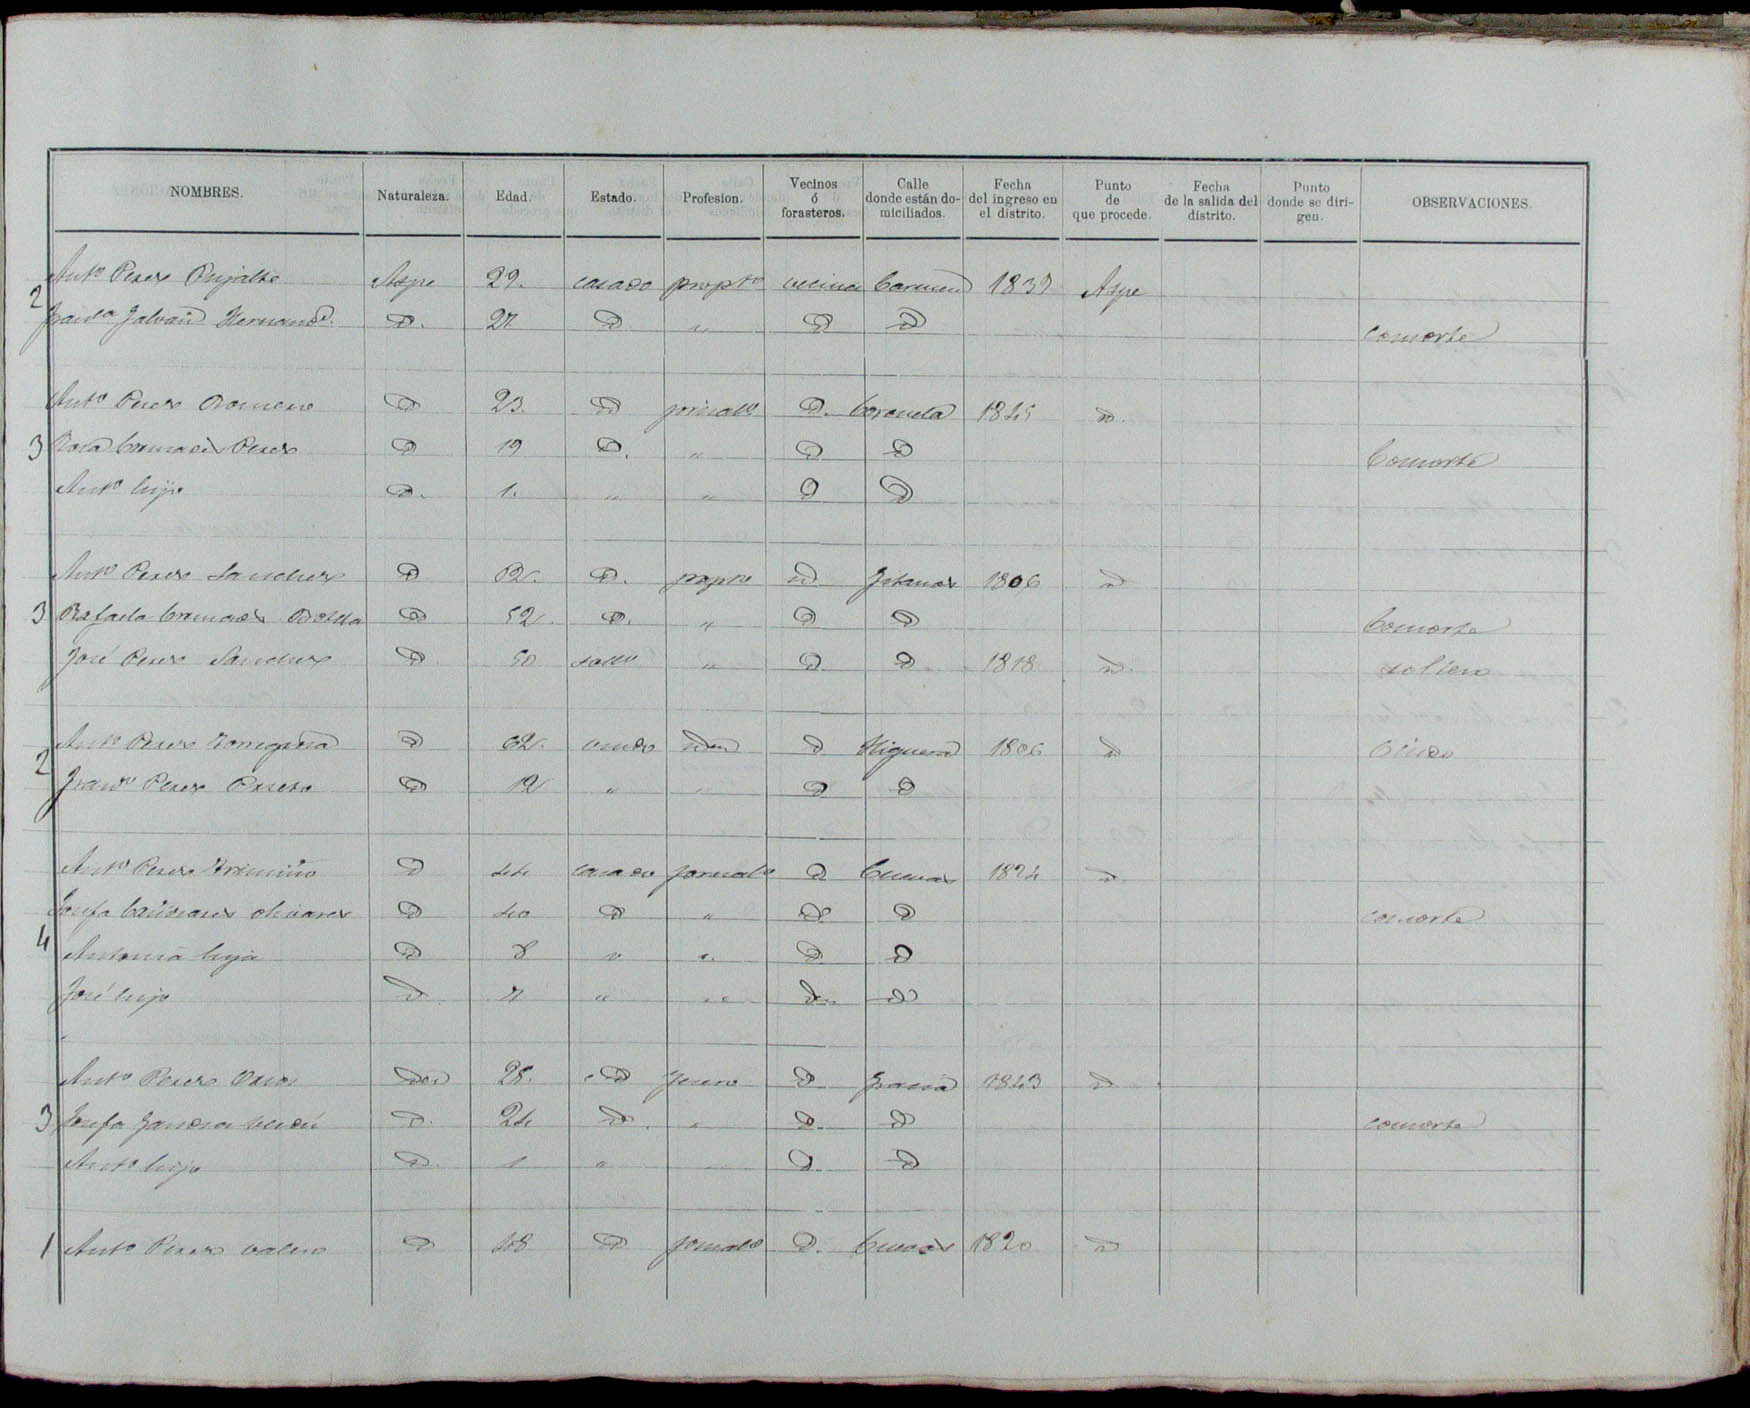 NOMBRES. Naturaleza. Edad. Estado. Profesion. Vecinos ó forasteros. Calle donde están domiciliados. Fecha del ingreso en el distrito. Punto de que procede. Fecha de la salida del distrito. Punto donde se dirigen. OBSERVACIONES.
2 Antº Perez Pujalte Aspe 29. casado proptº vecino Carmen 1839 Aspe
Galvañ Hernand. D. 27 D. " D D consorte
Antº Perez Romero D 23. D jornalº D. Coronela 1845 D.
3 Rosa Perez D 19 D. " D D Consorte
Antº hijo D. 1. " " D D
Antº Perez Sanchez D 62. D. proptº D 1806 D
3 Rafaela Botella D 52. D. " D D Consorte
José Perez Sanchez D. 50 soltº " D. D 1818 D. soltero
2 Antº Perez Torregrosa D 62. viudo iden D Higuera 1806 D viudo
Franº Perez D 12 " " D D
Antº Perez D 44 casado jornalº D Cuevas 1824 D
Josefa Cañizares Olivares D 40 D " D D consorte
4 Antonia hija D 8 " " D D
José hijo D. 7 " " D. D
Antº Perez D 28. D D Gracia 1843 D
3 Josefa D. 24 D. " D. D consorte
Antº hijo D. 1 " D. D
1 Antº Perez Valero D 48 D jornalº D. Cuevas 1820 D